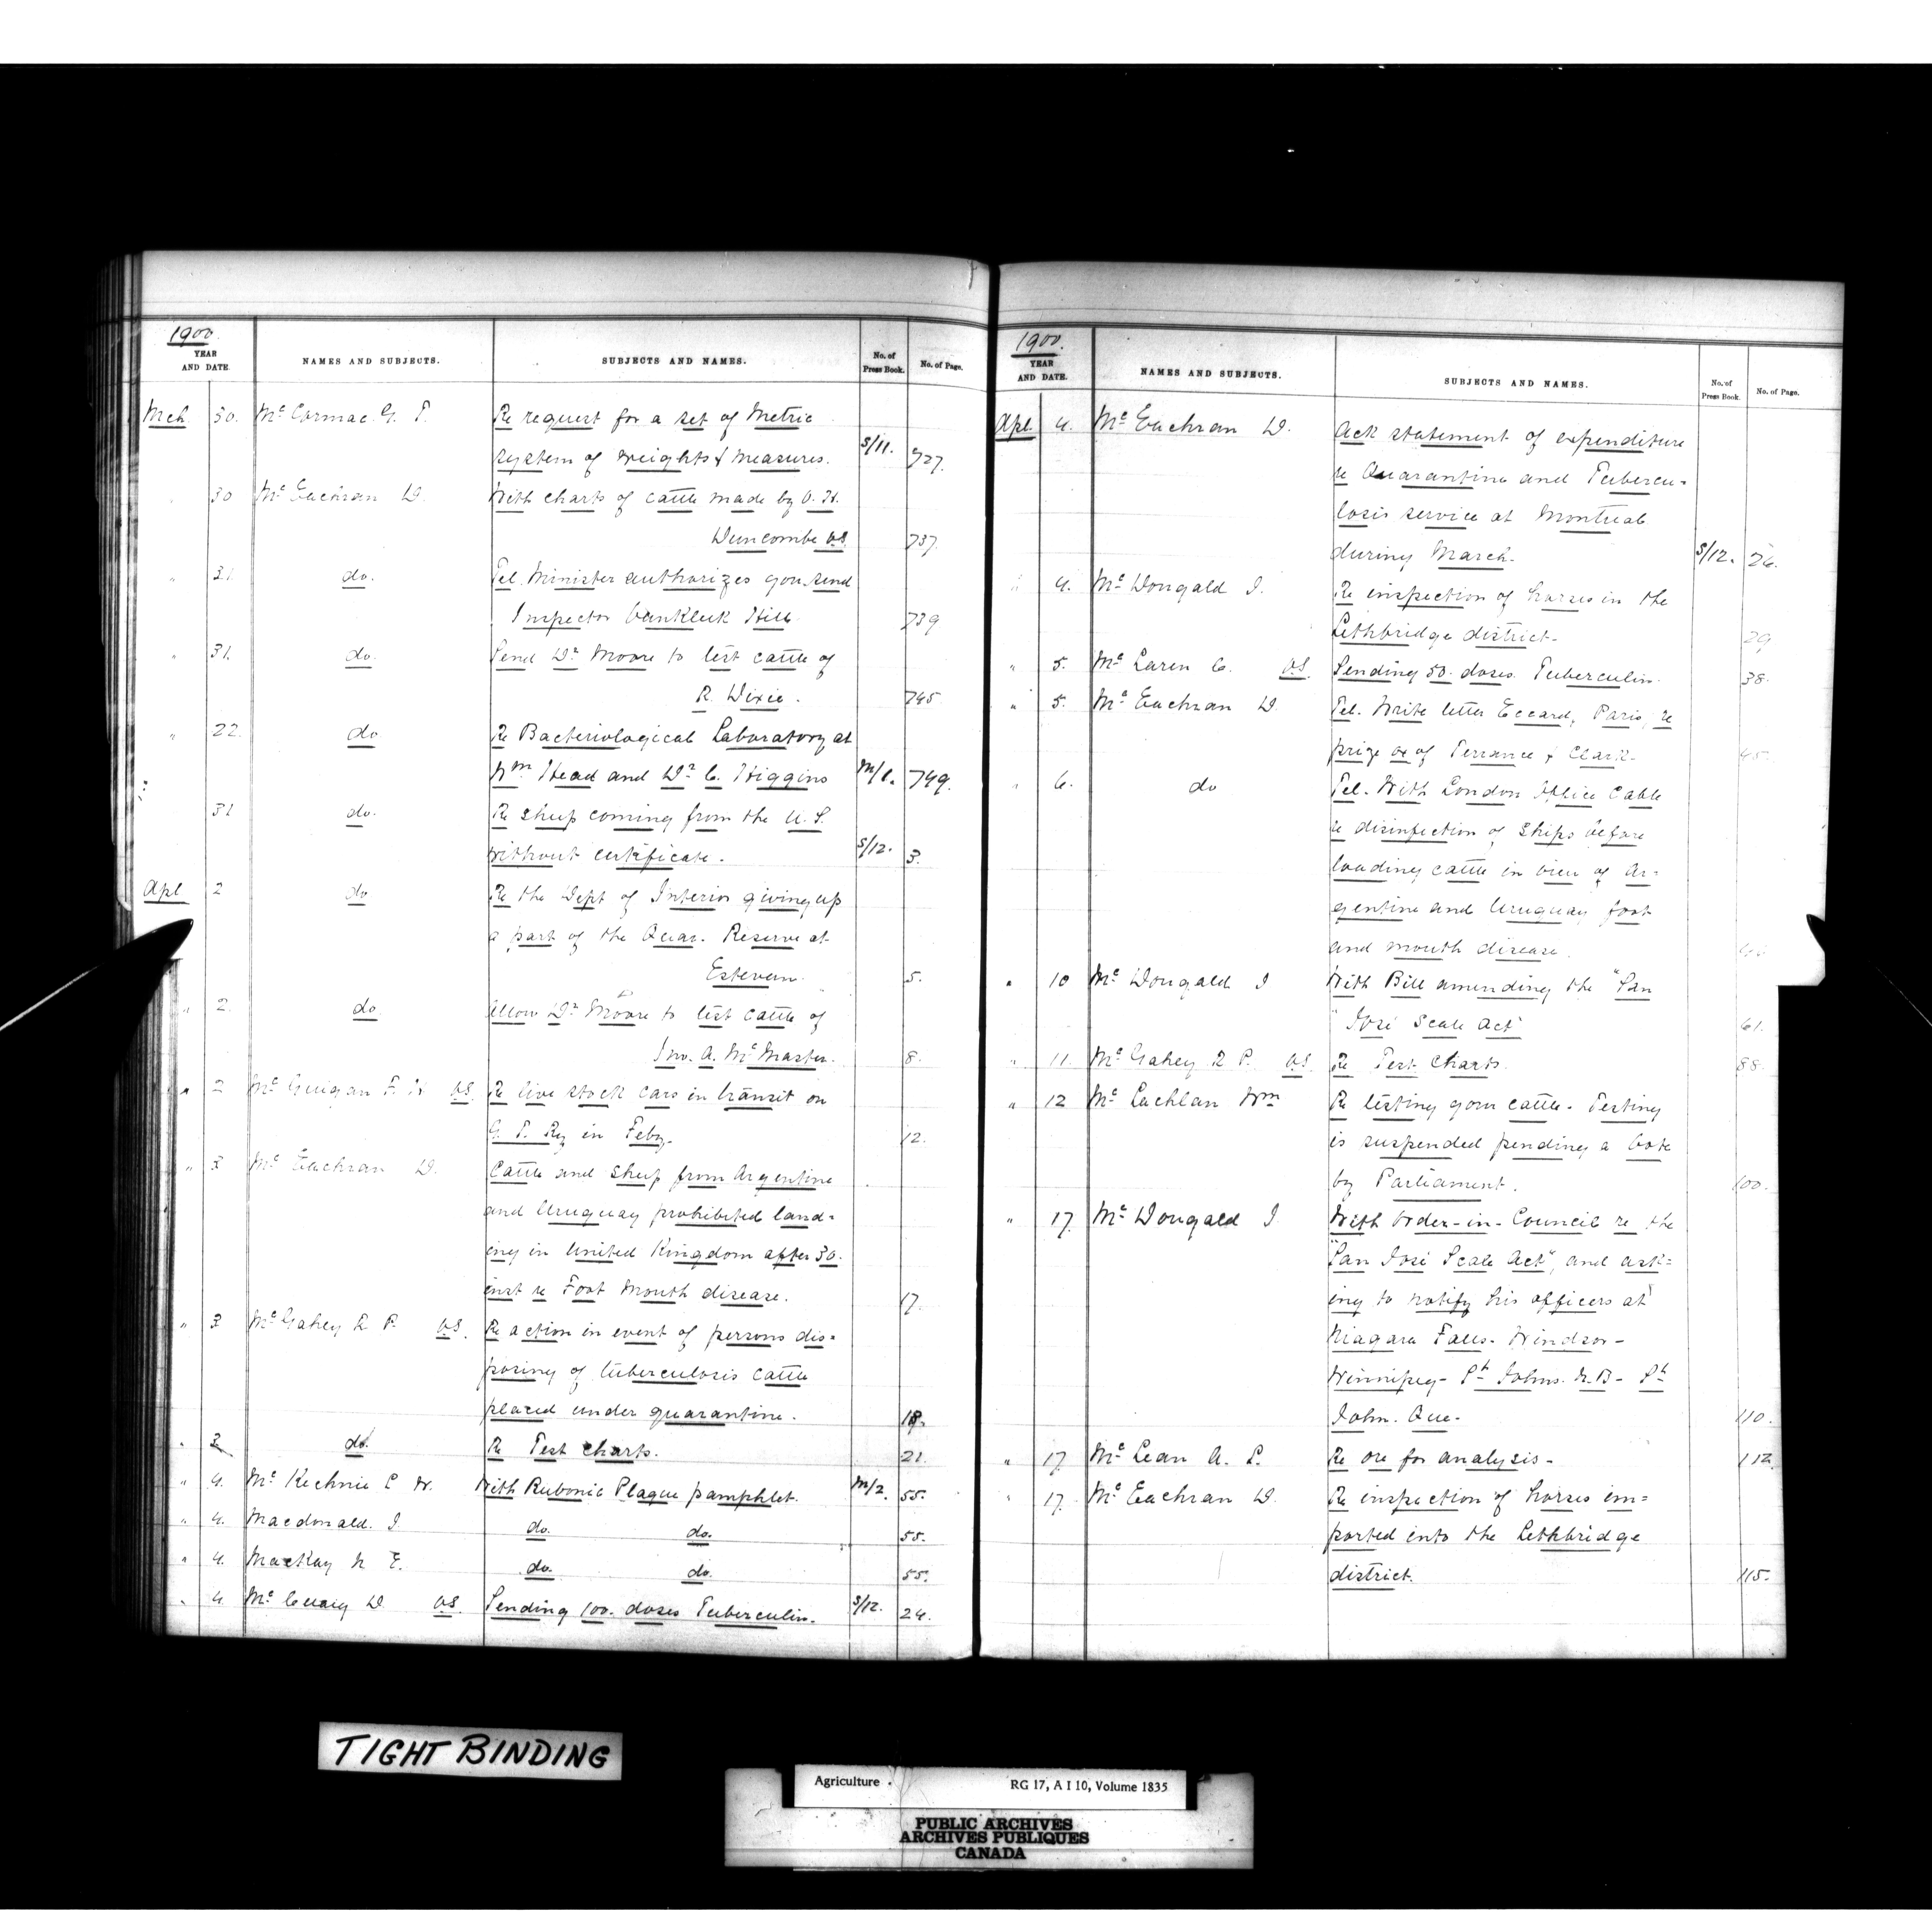 1900
YEAR AND DATE. NAMES AND SUBJECTS. SUBJECTS AND NAMES. No. of Press Book. No. of Page.
Mch 30. McCormac G. T. Re request for a set of Metric
system of weights & measures. S/11. 727.
" 30 McEachran D. With charts of cattle made by O. H.
Duncombe V.S. 737.
" 31. do. Tel. Minister authorizes you send
Inspector Vankleek Hill 739
" 31. do. Send Dr Moore to test cattle of
R. Dixie. 745
" 22. do Re Bacteriological Laboratory at
Wm Head and Dr C. Higgins M/1. 749.
31 do. Re sheep coming from the U.S.
without certificate. S/12. 3.
Apl 2 do Re the Dept of Interior giving up
a part of the Quar. Reserve at
Estevan. 5.
" 2. do Allow Dr Moore to test cattle of
Jno. A. McMaster. 8.
" 2 McGuigan F. H. V.S. Re live stock cars in transit on
G. T. Ry in Feby. 12.
" 3 McEachran D. Cattle and sheep from Argentine
and Uruguay prohibited land=
ing in United Kingdom after 30.
inst re Foot Mouth disease. 17.
" 3 McGahey R. P. V.S. Re action in event of persons dis=
posing of tuberculosis cattle
placed under quarantine. 18.
" 3 do. Re Test charts. 21.
" 4. McKechnie W. With Bubonic Plague pamphlet. M/2. 55.
" 4. Macdonald. J do. do. 55.
" 4. MacKay N E. do. do. 55.
" 4. McCuaig D V.S. Sending 100. doses Tuberculin. S/12. 24.
1900.
YEAR AND DATE. NAMES AND SUBJECTS. SUBJECTS AND NAMES. No. of Press Book. No. of Page.
Apl. 4. McEachran D. Ack statement of expenditure
re Quarantine and Tubercu=
losis service at Montreal
during March. S/12. 26.
" 4. McDougald J. Re inspection of horses in the
Lethbridge district. 29
" 5. McLaren C. V.S. Sending 50. doses Tuberculin. 38.
" 5. McEachran D. Tel. Write letter Eccard, Paris, re
prize ox of Terrance & Clark. 45.
" 6. do Tel. With London Office Cable
re disinfection of ships before
loading cattle in view of Ar=
gentine and Uruguay foot
and mouth disease.
" 10 McDougald J With Bill amending the "San
"José Scale Act" 61.
" 11. McGahey R P. V.S. Re Test Charts. 88.
" 12 McLachlan Wm Re testing your cattle. Testing
is suspended pending a Vote
by Parliament. 100.
" 17. McDougald J With Order-in-Council re the
"San José Scale Act", and ask=
ing to notify his officers at
Niagara Falls- Windsor-
Winnipeg- St Johns. N.B- St
John. Que. 110.
" 17. McLean A. L. Re ore for analysis- 112.
" 17. McEachran D. Re inspection of horses im=
ported into the Lethbridge
district. 115.
TIGHT BINDING
Agriculture RG 17, A I 10, Volume 1835
PUBLIC ARCHIVES
ARCHIVES PUBLIQUES
CANADA